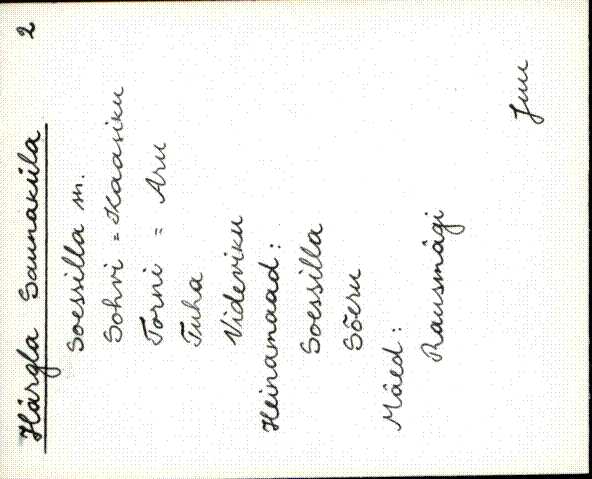 Härgla Saunaküla 2
Soessilla m.
Sohvi = Kaasiku
Torni = Aru
Tuha
Videviku
Heinamaad:
Soessilla
Sõeru
Mäed:
Rausmägi
Juu